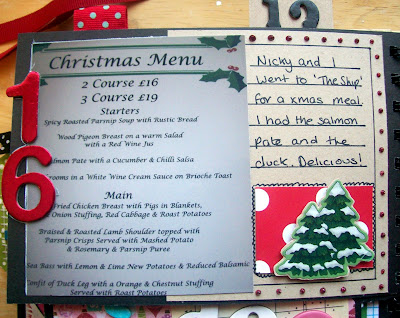 Christmas Menu
2 Course £16
3 Course £19
Starters
Spicy Roasted Parsnip Soup with Rustic Bread
Wood Pigeon Breast on a warm Salad
with a Red Wine Jus
Salmon Pate with a Cucumber & Chilli Salsa
in a White Wine Cream Sauce on Brioche Toast
Main
Fried Chicken Breast with Pigs in Blankets,
Onion Stuffing, Red Cabbage & Roast Potatoes
Braised & Roasted Lamb Shoulder topped with
Parsnip Crisps Served with Mashed Potato
& Rosemary & Parsnip Puree
Sea Bass with Lemon & Lime New Potatoes & Reduced Balsamic
Confit of Duck Leg with a Orange & Chestnut Stuffing
Served with Roast Potatoes
16
12
Nicky and I
went to 'The Ship'
for a xmas meal.
I had the salmon
pate and the
duck. Delicious!